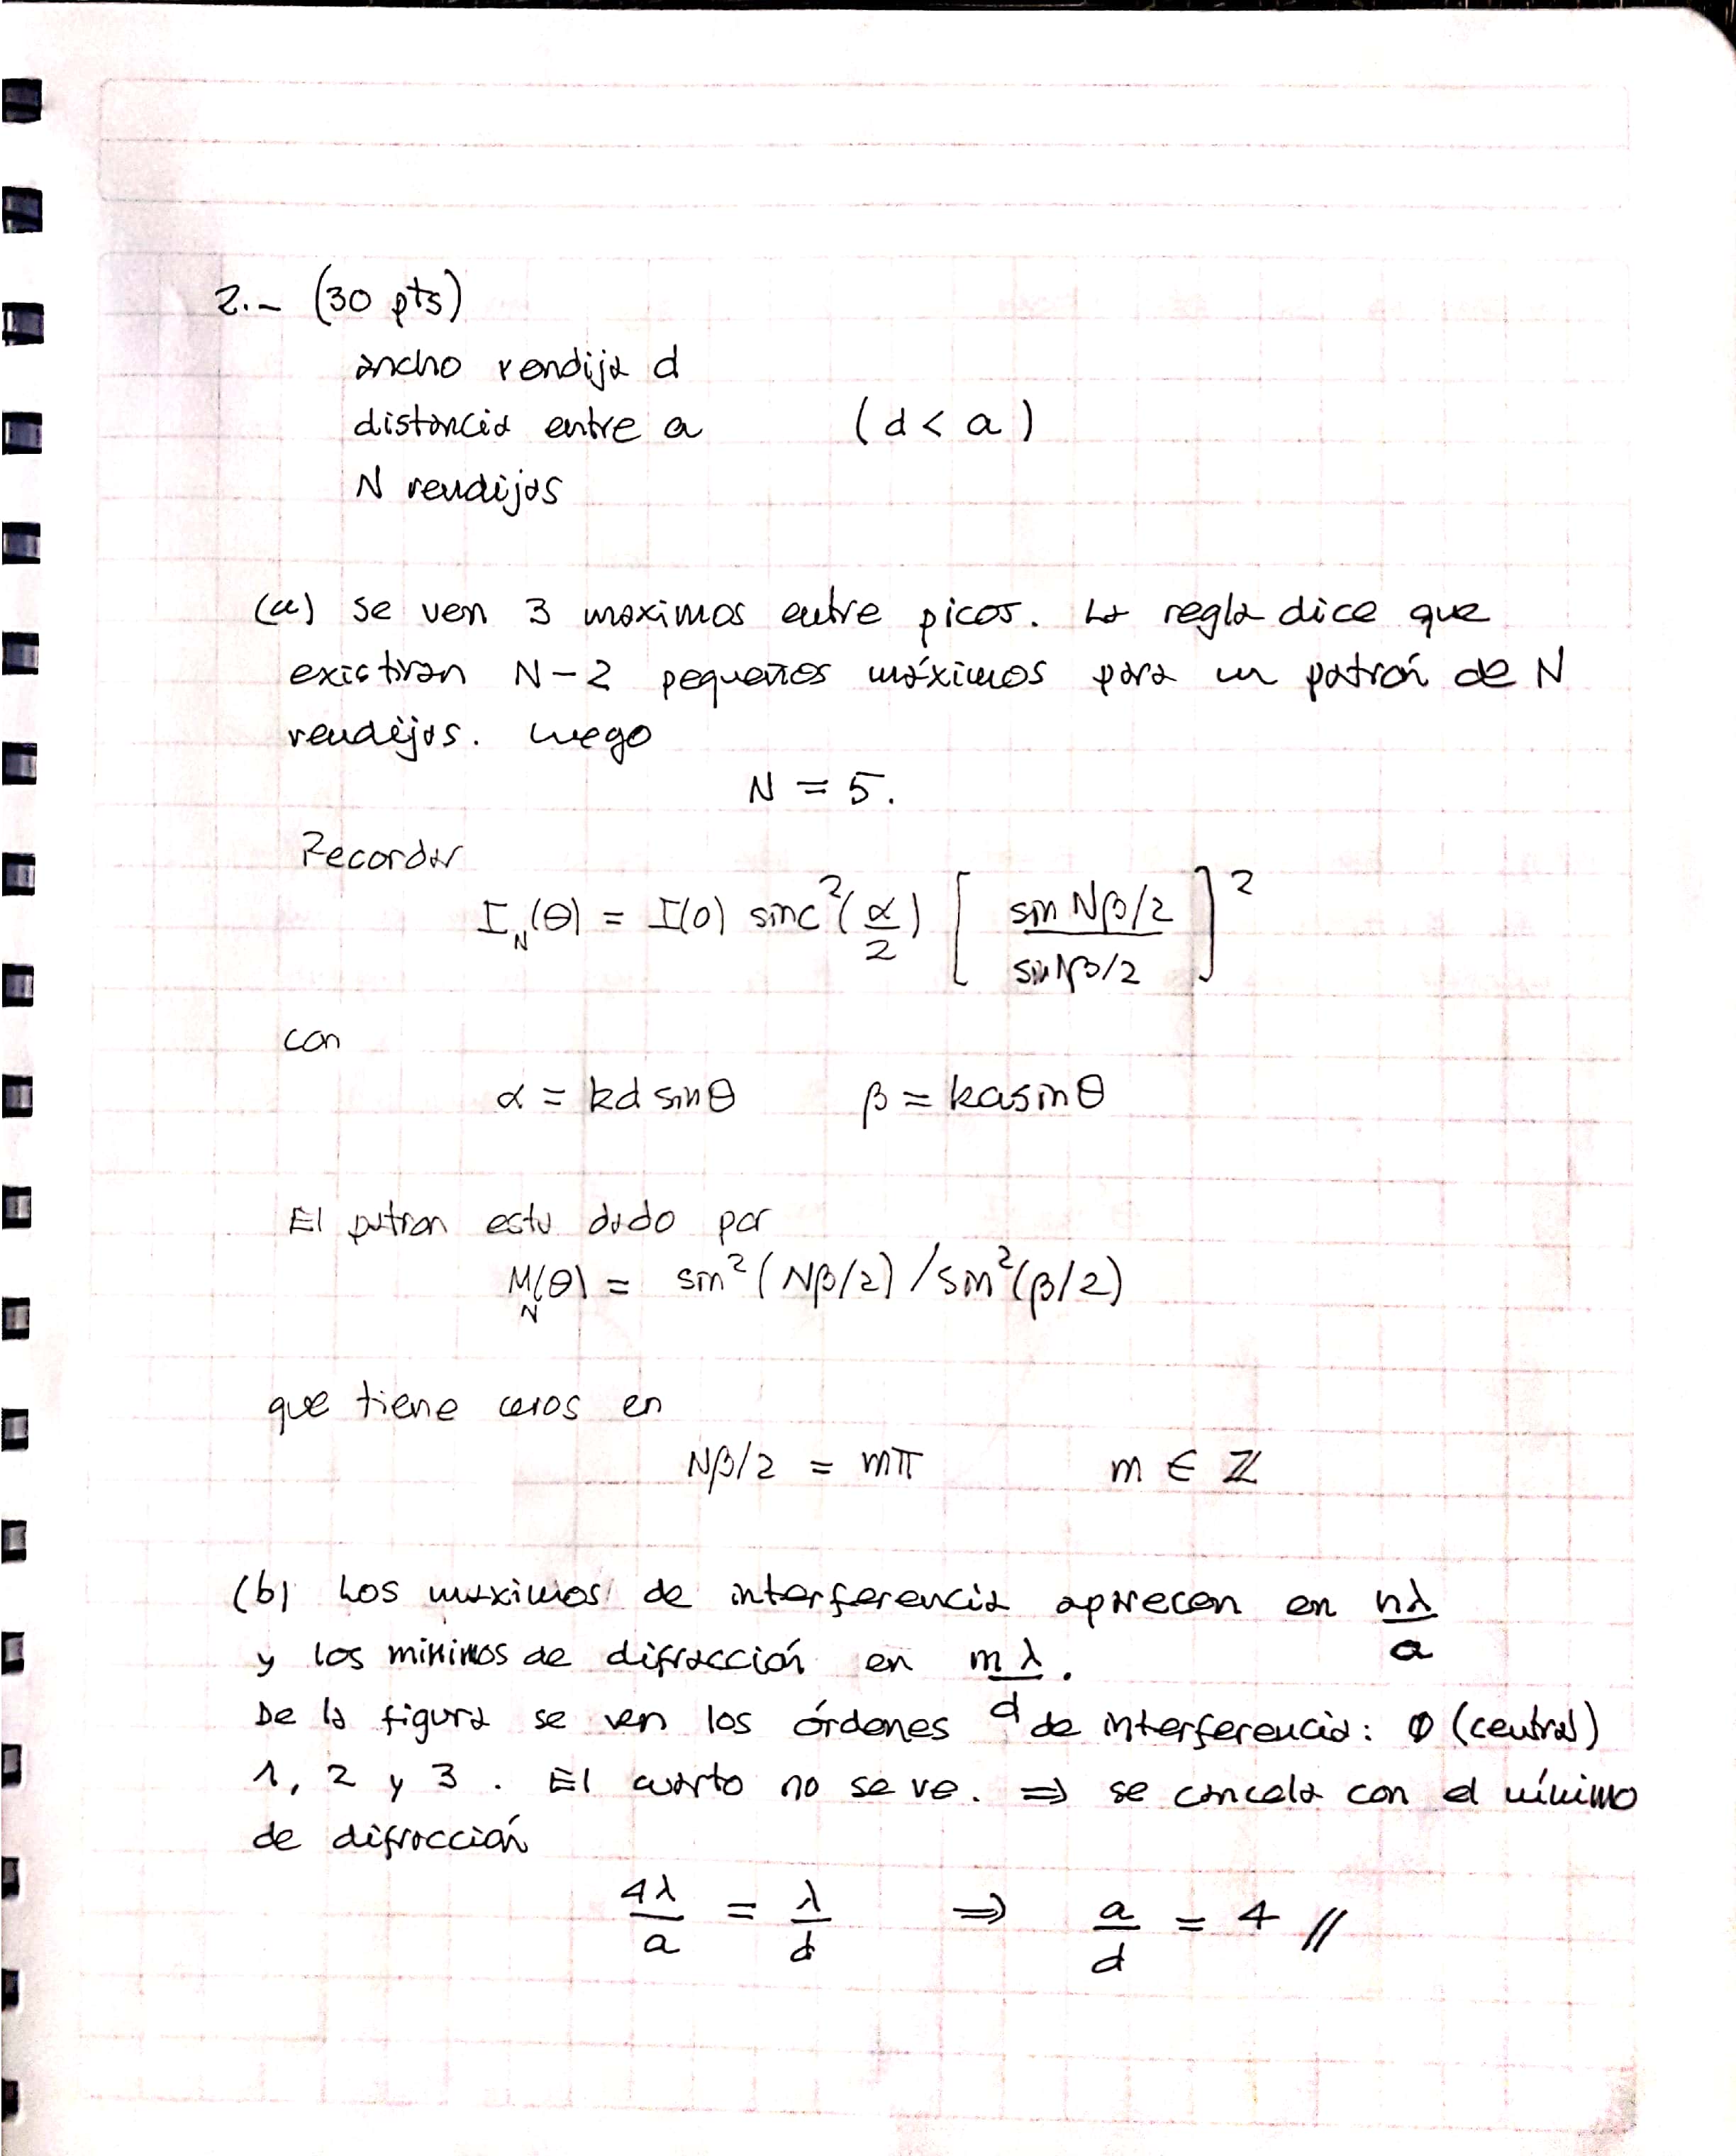 2.- (30 pts)
ancho rendija d
distancia entre a (d < a)
N rendijas
(a) Se ven 3 maximos entre picos. La regla dice que
existiran N-2 pequeños máximos para un patrón de N
rendijas. Luego
N = 5.
Recordar
I_N(θ) = I(0) sinc²(α/2) [ sin Nβ/2 / sin Nβ/2 ]²
con
α = kd sinθ β = ka sinθ
El patron esta dado por
M_N(θ) = sin²(Nβ/2) / sin²(β/2)
que tiene ceros en
Nβ/2 = mπ m ∈ ℤ
(b) Los maximos de interferencia aparecen en nλ/a
y los minimos de difracción en mλ/d.
De la figura se ven los órdenes de interferencia: 0 (central)
1, 2 y 3. El cuarto no se ve. ⇒ se cancela con el mínimo
de difracción
4λ/a = λ/d ⇒ a/d = 4 //